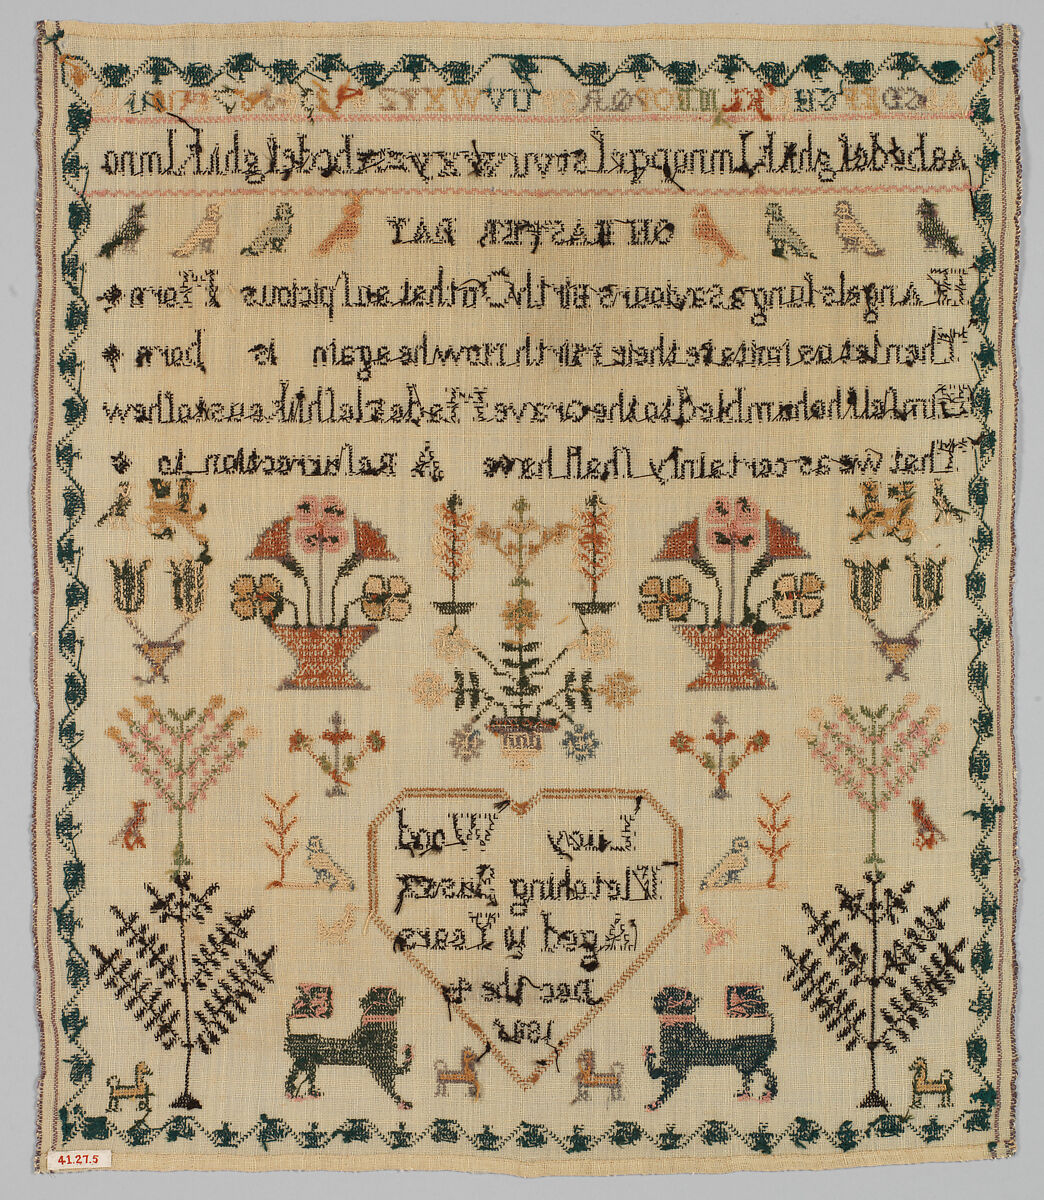 CDEFGH KL NOPQR UV WXYZ
Aabcdefghiklmnopqrſstvuwxyzabcdefghiklmno
ON EASTER DAY
If Angels ſung a saviours Birth On that auſpicious Morn
Then let us imitate their Mirth Now he again is born
Himſelf he humbled to the Grave Made fleſh like us to ſhew
That we as certainly ſhall have A Reſurrection to
Lucy Wood
Fletching Susex
Aged Years
Dec the 4
41.27.5